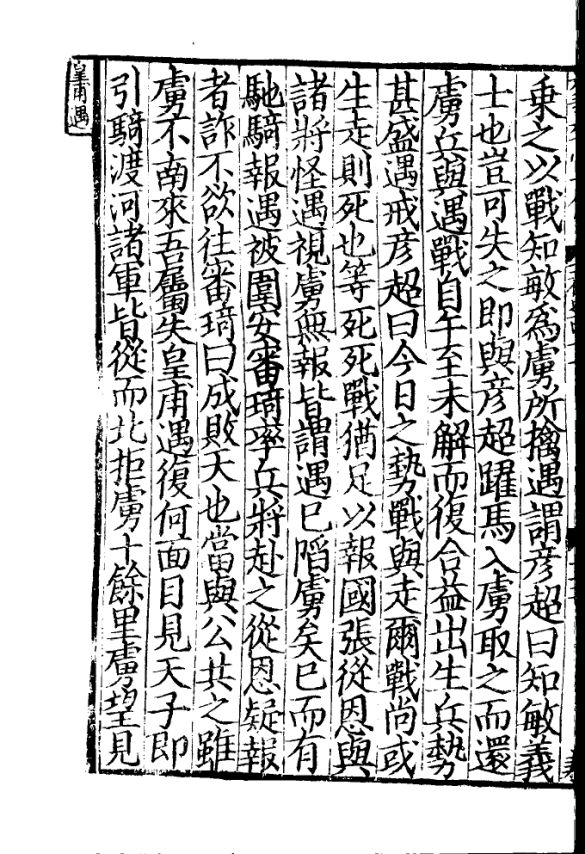 乗之以戰知敏爲虜所擒遇謂彦超曰知敏義
士也豈可失之即與彦超躍馬入虜取之而還
虜兵與遇戰自午至未解而復合益出生兵勢
甚盛遇戒彦超曰今日之勢戰與走爾戰尚或
生走則死也等死死戰猶足以報國張從恩與
諸將怪遇視虜無報皆謂遇已陷虜矣已而有
馳騎報遇被圍安審琦率兵將赴之從恩疑報
者詐不欲往審琦曰成敗天也當與公共之雖
虜不南來吾屬失皇甫遇復何面目見天子即
引騎渡河諸軍皆從而北拒虜十餘里虜望見
皇甫遇